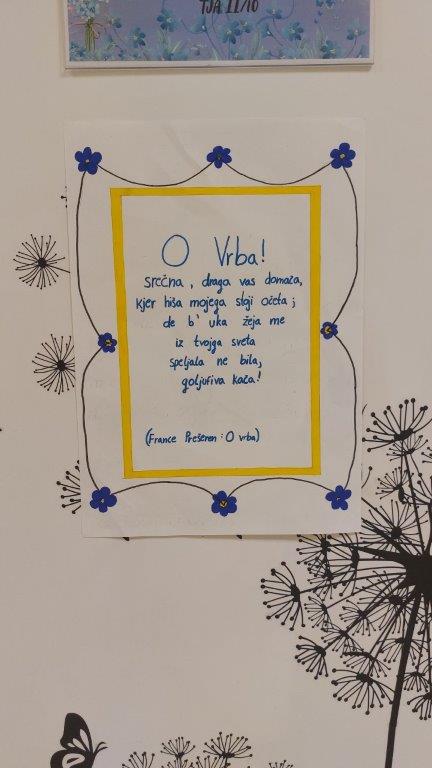 TJA II/10
O Vrba!
srečna, draga vas domača,
kjer hiša mojega stoji očeta;
de b' uka žeja me
iz tvojga sveta
speljala ne bila,
goljufiva kača!
(France Prešeren: O vrba)